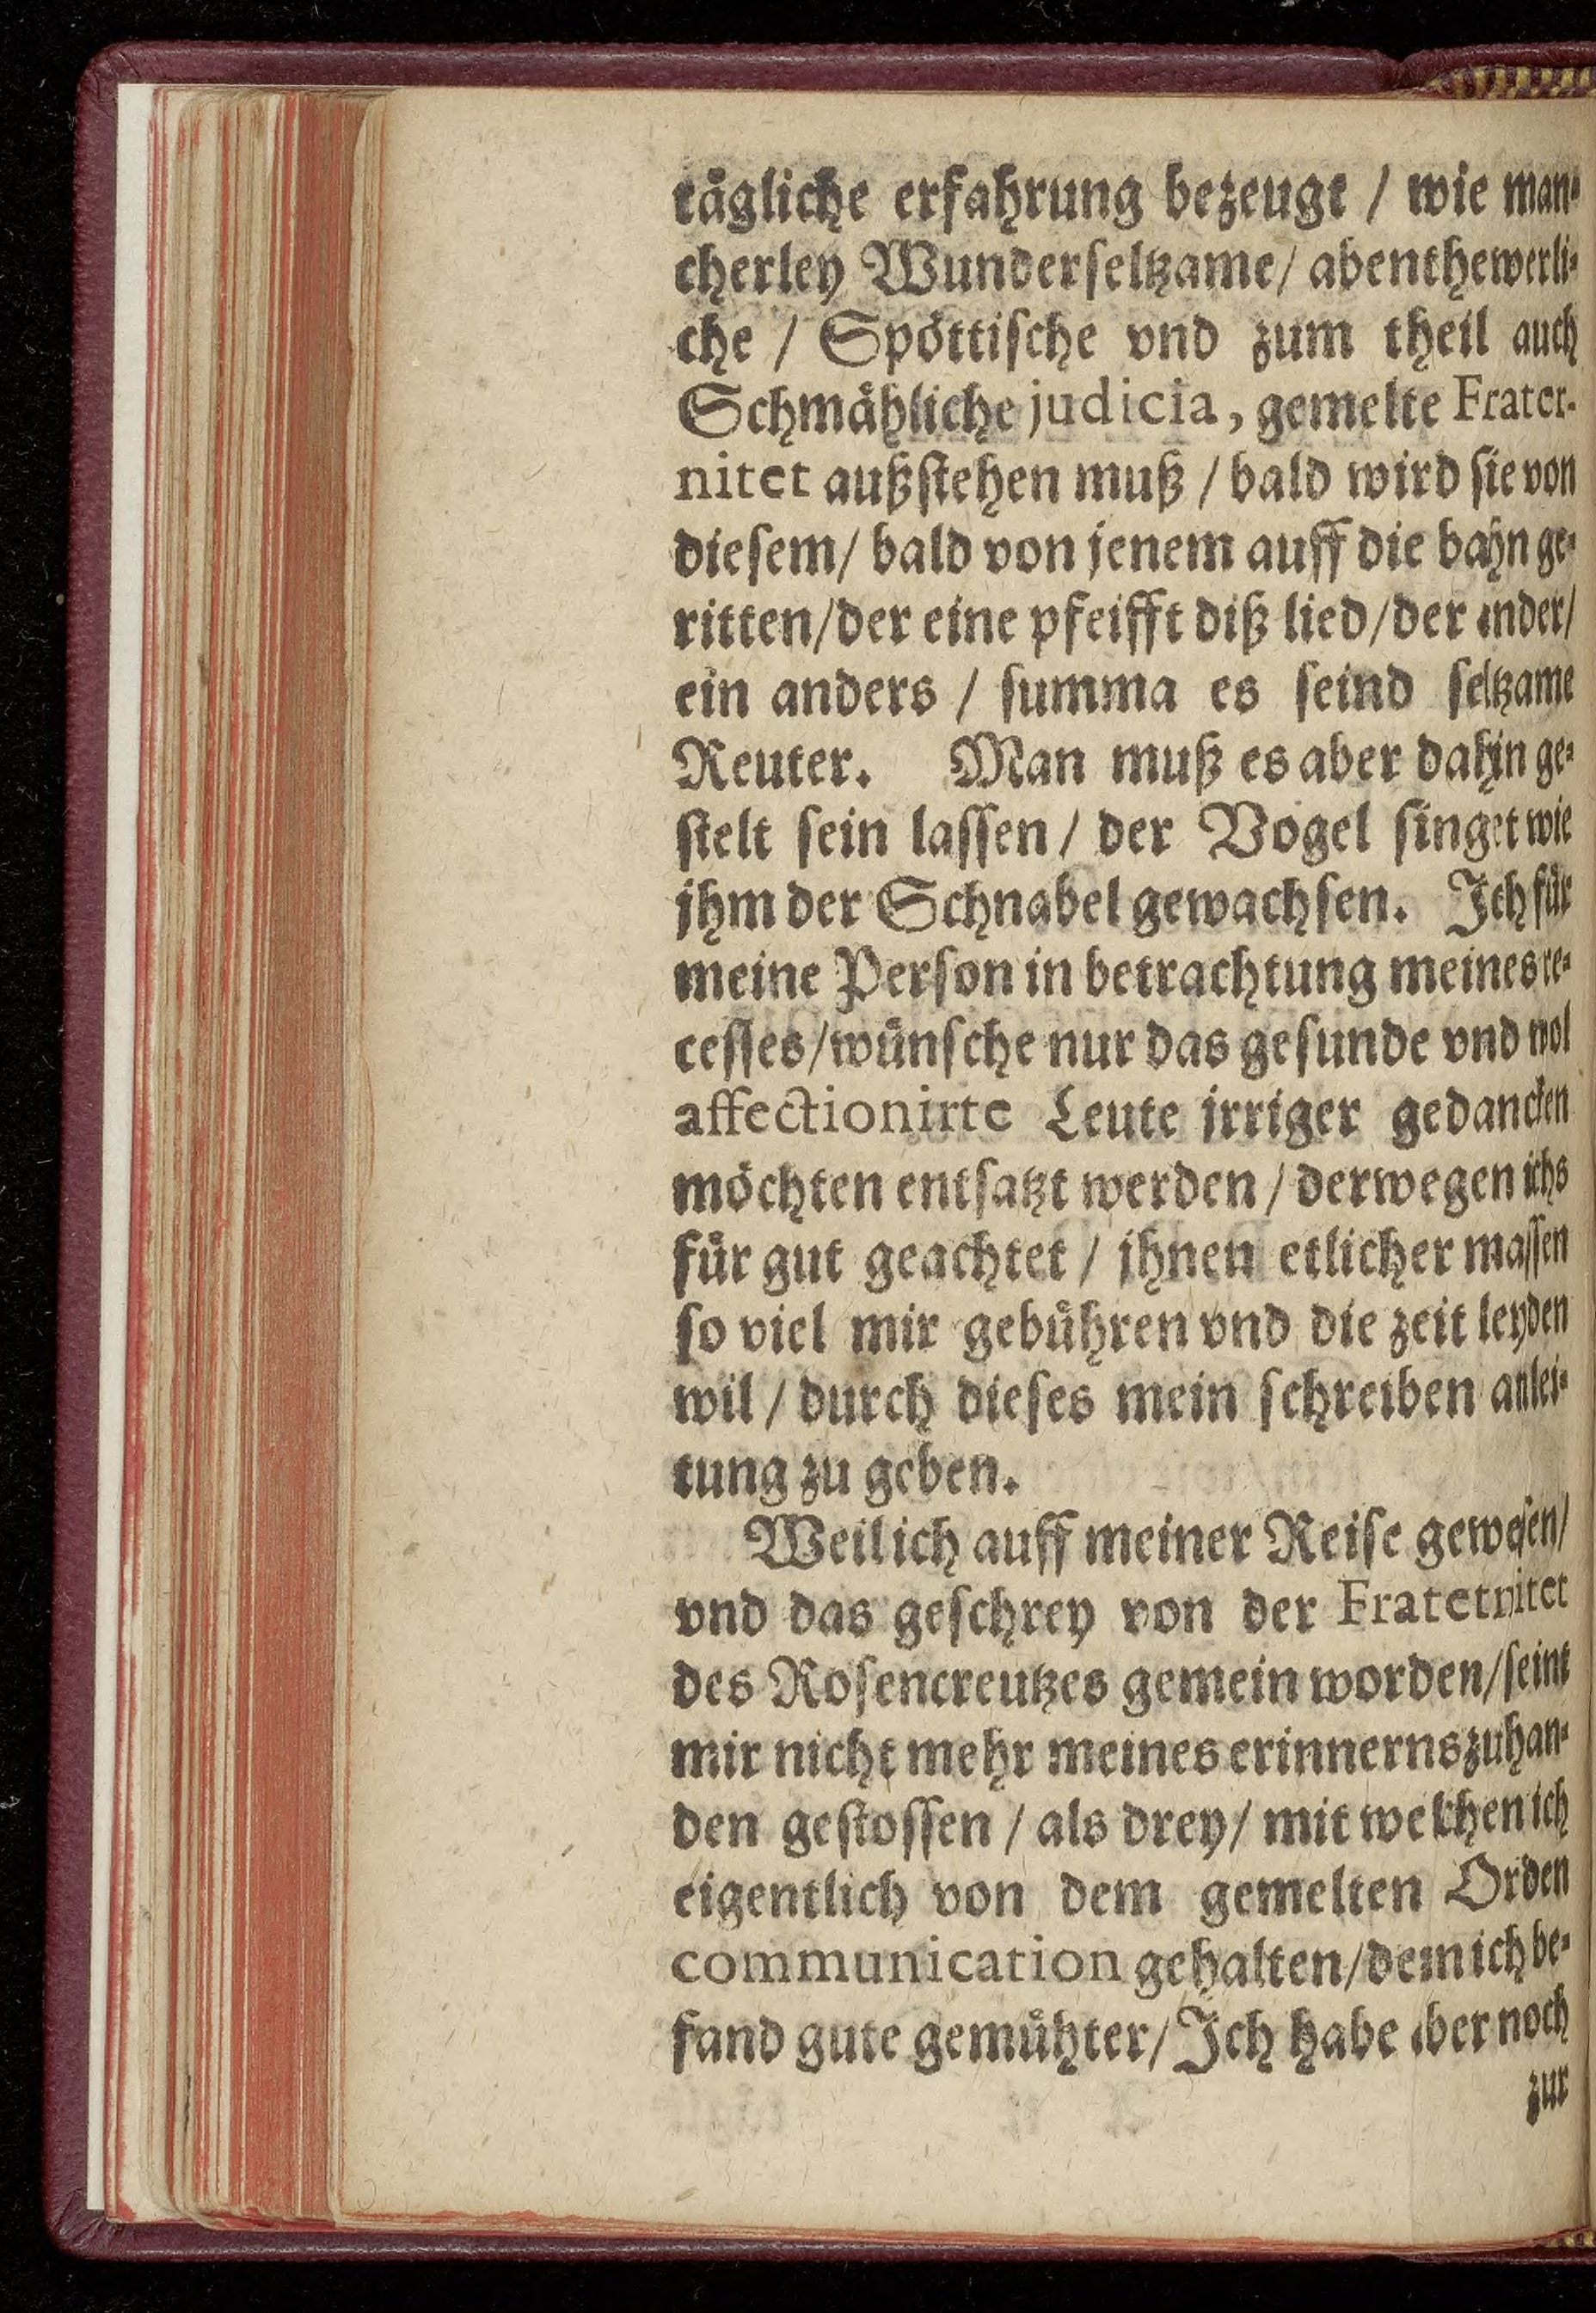 tägliche erfahrung bezeugt / wie man-
cherley Wunderseltzame/ abenthewerli-
che / Spöttische vnd zum theil auch
Schmähliche judicia, gemelte Frater-
nitet außstehen muß / bald wird sie von
diesem/ bald von jenem auff die bahn ge-
ritten/der eine pfeifft diß lied/der ander/
ein anders / summa es seind seltzame
Reuter. Man muß es aber dahin ge-
stelt sein lassen/ der Vogel singet wie
jhm der Schnabel gewachsen. Ich für
meine Person in betrachtung meines re-
cesses/wünsche nur das gesunde vnd wol
affectionirte Leute irriger gedancken
möchten entsatzt werden / derwegen ichs
für gut geachtet / jhnen etlicher massen
so viel mir gebühren vnd die zeit leyden
wil / durch dieses mein schreiben anlei-
tung zu geben.
Weil ich auff meiner Reise gewesen/
vnd das geschrey von der Fratetnitet
des Rosencreutzes gemein worden/seint
mir nicht mehr meines erinnerns zuhan-
den gestossen / als drey/ mit welchen ich
eigentlich von dem gemelten Orden
communication gehalten/dem ich be-
fand gute gemühter/Ich habe aber noch
zur